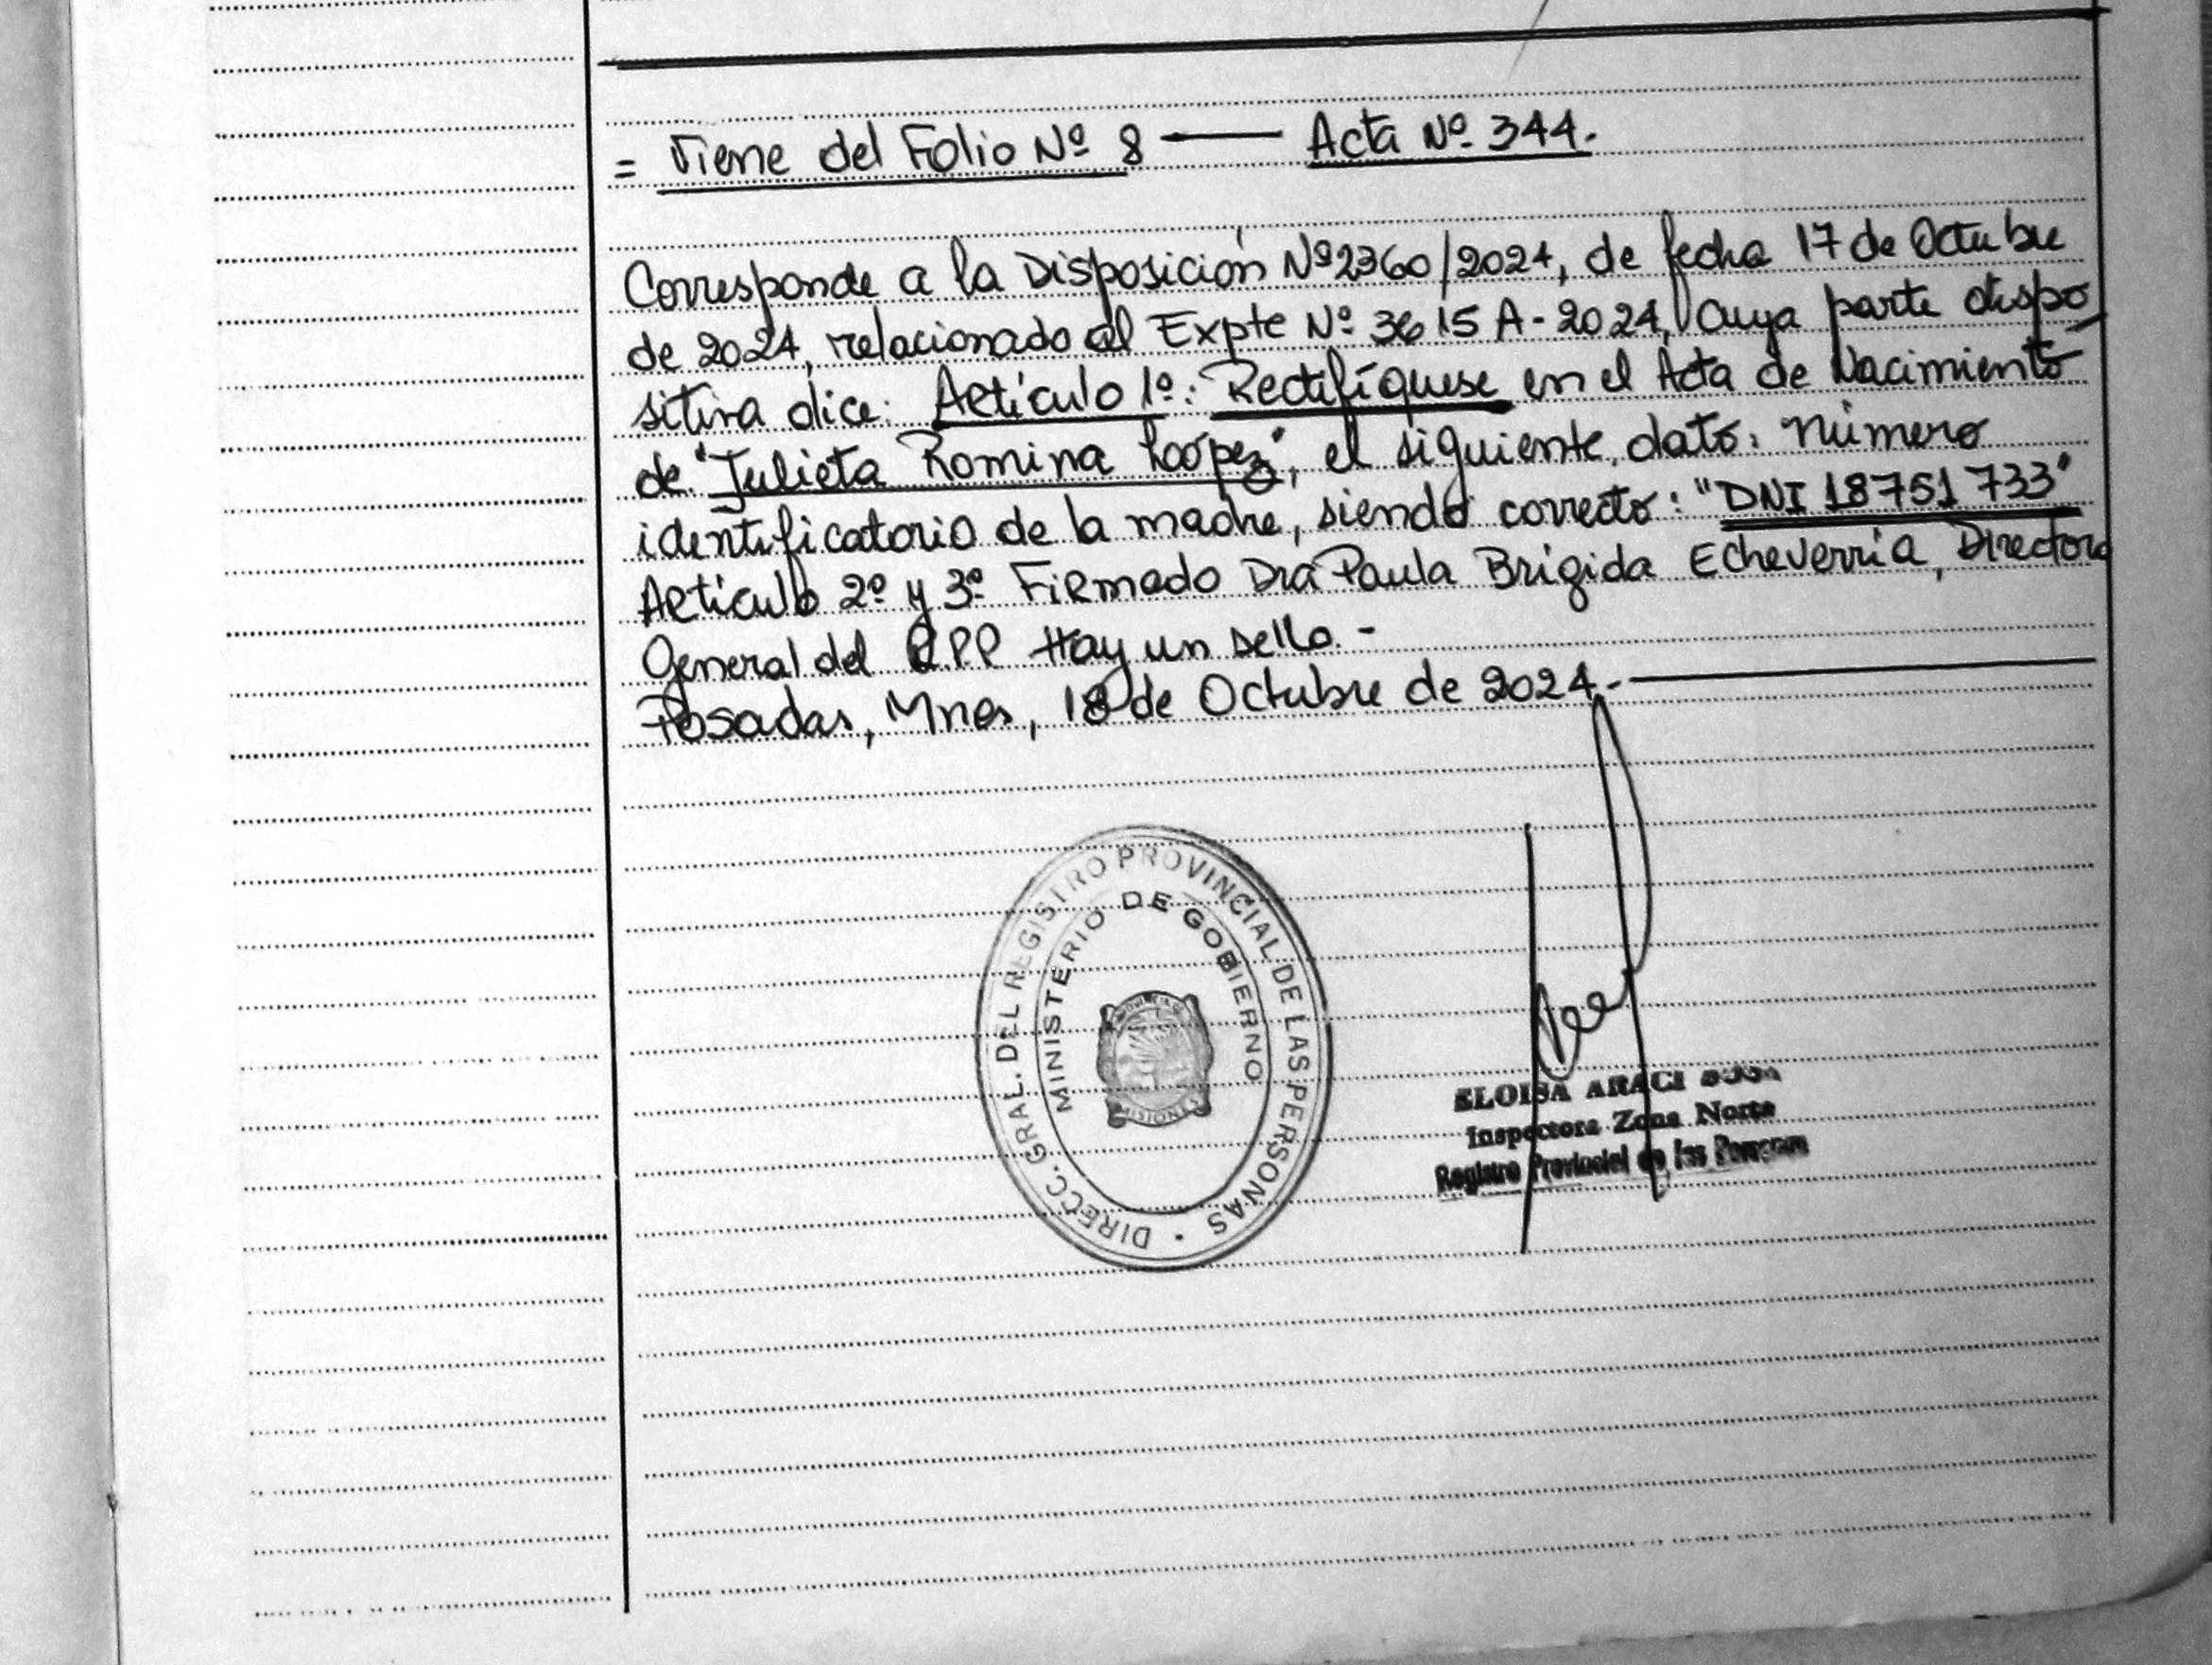 = Viene del Folio Nº 8 — Acta Nº 344.
Corresponde a la Disposición Nº 2360/2024, de fecha 17 de Octubre
de 2024, relacionado al Expte Nº 3615 A-2024, cuya parte dispo
sitiva dice: Artículo 1º: Rectifíquese en el Acta de Nacimiento
de "Julieta Romina Loópez", el siguiente dato: número
identificatorio de la madre, siendo correcto: "DNI 18751733"
Artículo 2º y 3º Firmado Dra Paula Brígida Echeverría, Directora
General del RPP Hay un sello.-
Posadas, Mnes, 18 de Octubre de 2024.-
DIRECC. GRAL. DEL REGISTRO PROVINCIAL DE LAS PERSONAS
MINISTERIO DE GOBIERNO
PROVINCIA DE
MISIONES
ELOISA ARACI
Inspectora Zona Norte
Registro Provincial de las Personas